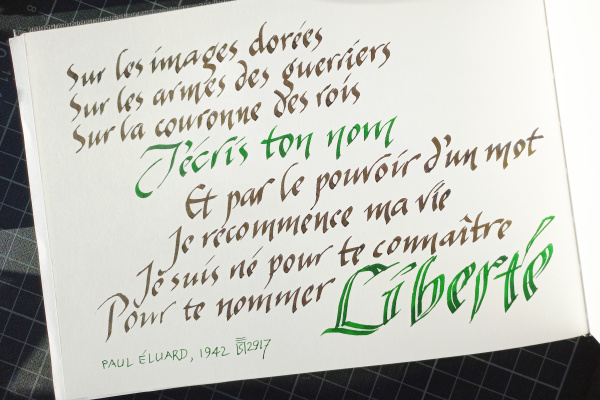 Sur les images dorées
Sur les armes des guerriers
Sur la couronne des rois
J'écris ton nom
Et par le pouvoir d'un mot
Je recommence ma vie
Je suis né pour te connaître
Pour te nommer Liberté
PAUL ÉLUARD, 1942